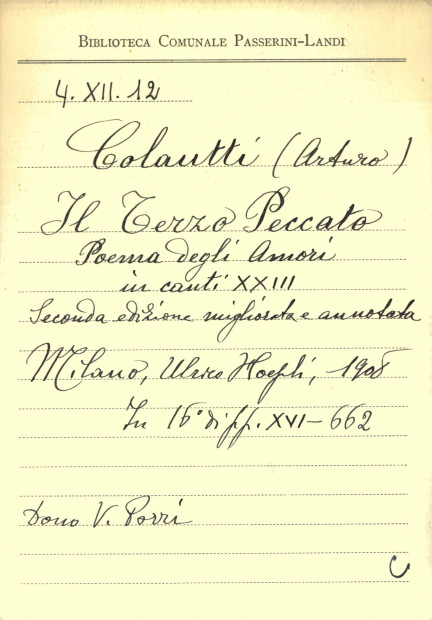 BIBLIOTECA COMUNALE PASSERINI-LANDI
4. XII. 12
Colautti (Arturo)
Il Terzo Peccato
Poema degli Amori
in canti XXIII
Seconda edizione migliorata e annotata
Milano, Ulrico Hoepli, 1908
In 16° di pp. XVI-662
Dono V. Porri
C